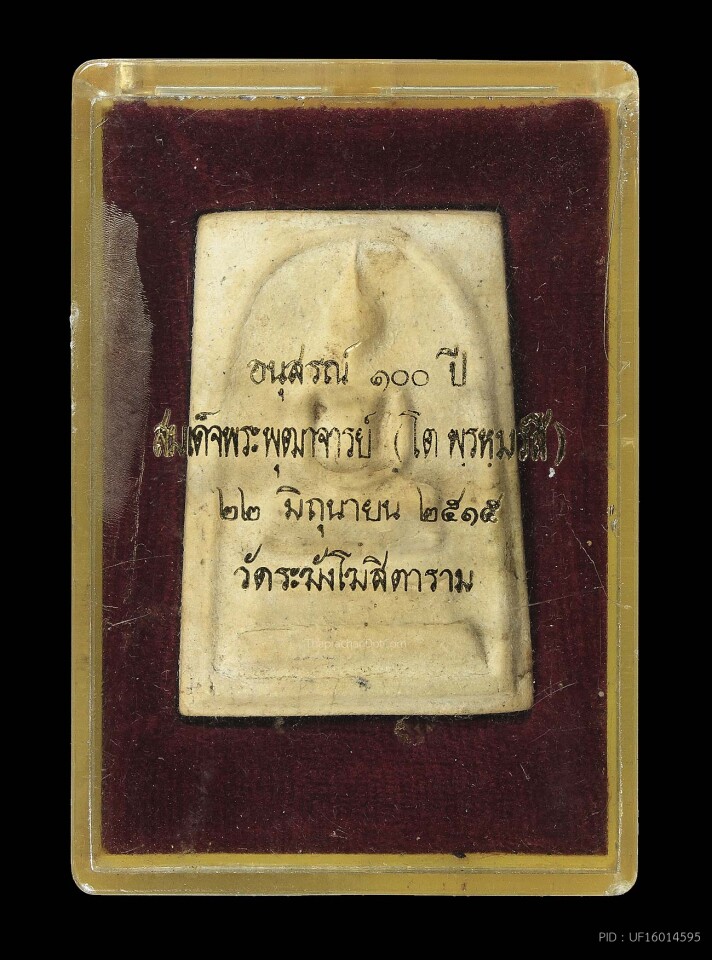 อนุสรณ์ ๑๐๐ ปี
สมเด็จพระพุฒาจารย์ (โต พฺรหฺมรํสี)
๒๒ มิถุนายน ๒๕๑๕
วัดระฆังโฆสิตาราม
PID : UF16014595